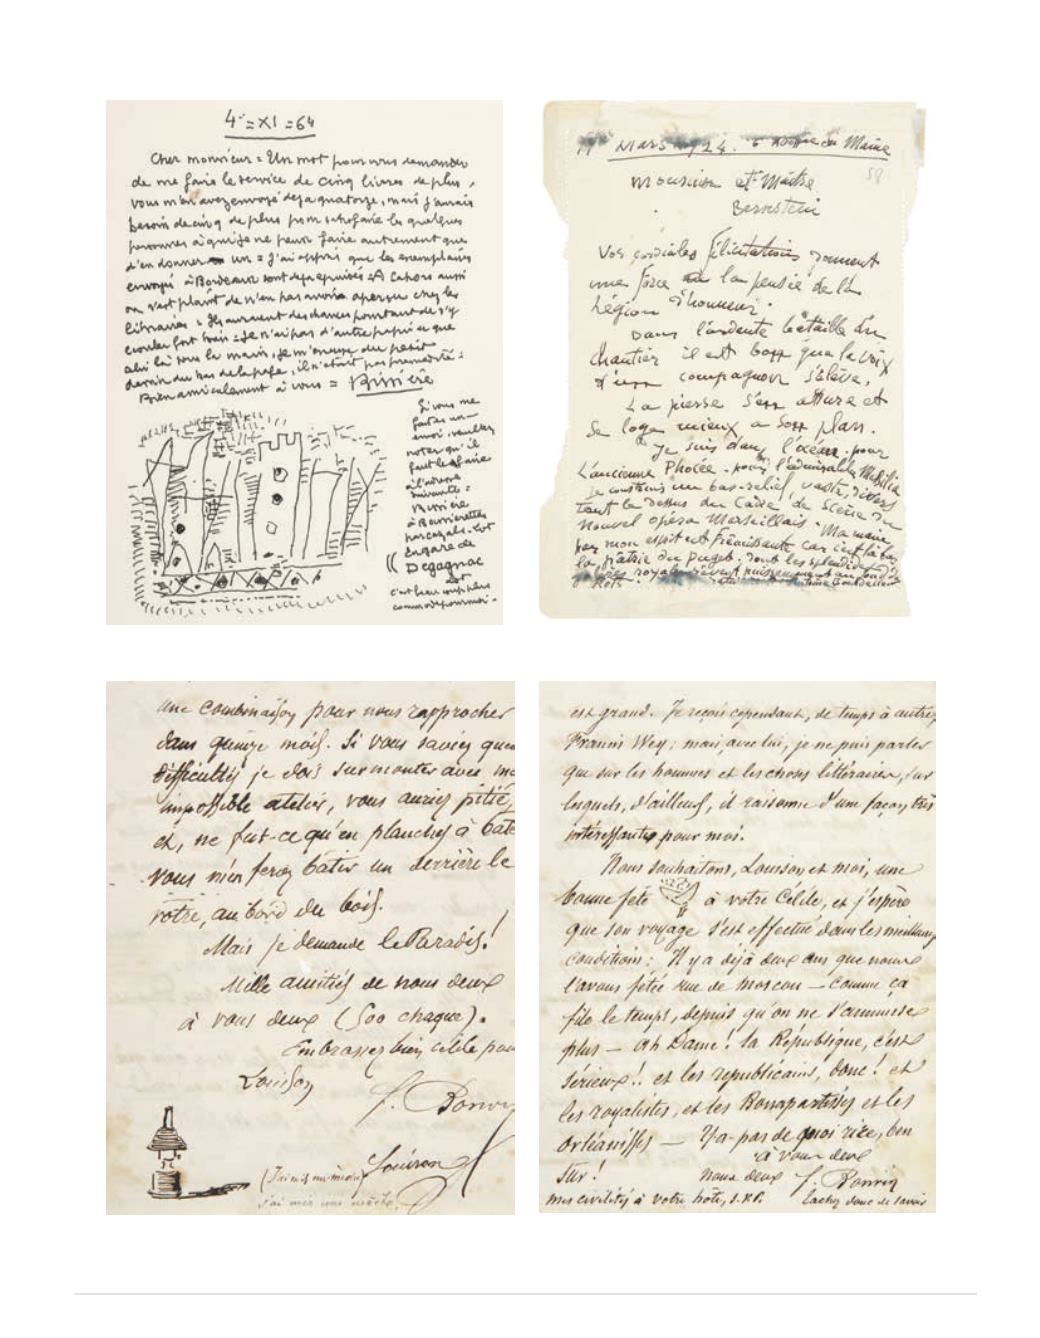 4 = XI = 64
Cher monsieur = Un mot pour vous demander
de me faire le service de cinq livres de plus,
vous m'en avez envoyé deja quatorze, mais j'aurais
besoin de cinq de plus pour satisfaire les quelques
personnes à qui je ne peux faire autrement que
d'en donner un = J'ai appris que les exemplaires
envoyés à Bordeaux sont deja epuisés = A Cahors aussi
on s'est plaint de n'en pas avoir aperçu chez les
libraires = Ils auraient des chances pourtant de s'y
ecouler fort bien = Je n'ai pas d'autre papier que
celui là sous la main, je m'excuse du petit
dessin du bas de la page, il n'était pas prémédité =
Bien amicalement à vous = Bissière
Si vous me
faites un
envoi, veuillez
noter qu'il
faut le faire
à l'adresse
suivante =
Bissière
à Boissierettes
par Cazals - Lot
La gare de
Degagnac
est
c'est beaucoup plus
commode pour moi -
Mars 1924. 6 avenue du Maine
58
Monsieur et Maître
Bernstein
Vos cordiales félicitations donnent
une force à la pensée de la
Légion d'honneur.
Dans l'ardente bataille du
chantier il est bon que la voix
d'un compagnon s'élève.
La pierse s'en assure et
se loge mieux a son plan.
Je suis dans l'océan. pour
L'ancienne Phocée. pour l'admirable Massilia
Je construis un bas-relief, vaste, divers
tout le dessus du Cadre de Scène du
nouvel opéra Marseillais. Ma main
par mon esprit est frémissante car c'est là bas
la patrie du Puget. dont les splendides
royales
hôte. Antoine Bourdelle
une combinaison pour nous rapprocher
dans quinze mois. Si vous saviez quelles
difficultés je dois surmonter avec mon
impossible atelier, vous auriez pitié,
et, ne fut-ce qu'en planches à bate
vous m'en feroz bâtir un derrière le
votre, au bord du bois.
Mais je demande le Paradis!
Mille amitiés de nous deux
à vous deux (500 chaque).
Embrassez bien Célile pour
Louison
f. Bonvin
Louison
(J'ai mis une mèche)
j'ai mis une mèche.
est grand. Je reçois cependant, de temps à autre,
Francis Wey; mais, avec lui, je ne puis parler
que sur les hommes et les choses littéraires, sur
lesquels, d'ailleurs, il raisonne d'une façon très
intéressante pour moi.
Nous souhaitons, Louison et moi, une
bonne fête à votre Célile, et j'espère
que son voyage s'est effectué dans les meilleures
conditions: Il y a déjà deux ans que nous
l'avons fêtée rue de Moscou – comme ça
file le temps, depuis qu'on ne s'amuse
plus – Ah Dame! la République, c'est
sérieux!. et les republicains, donc! et
les royalistes, et les Bonapartistes et les
Orléanistes — Y a pas de quoi rire, ben
sur!
à vous deux
Nous deux f. Bonvin
mes civilités à votre hôte, S.V.P.
tachez donc de savoir